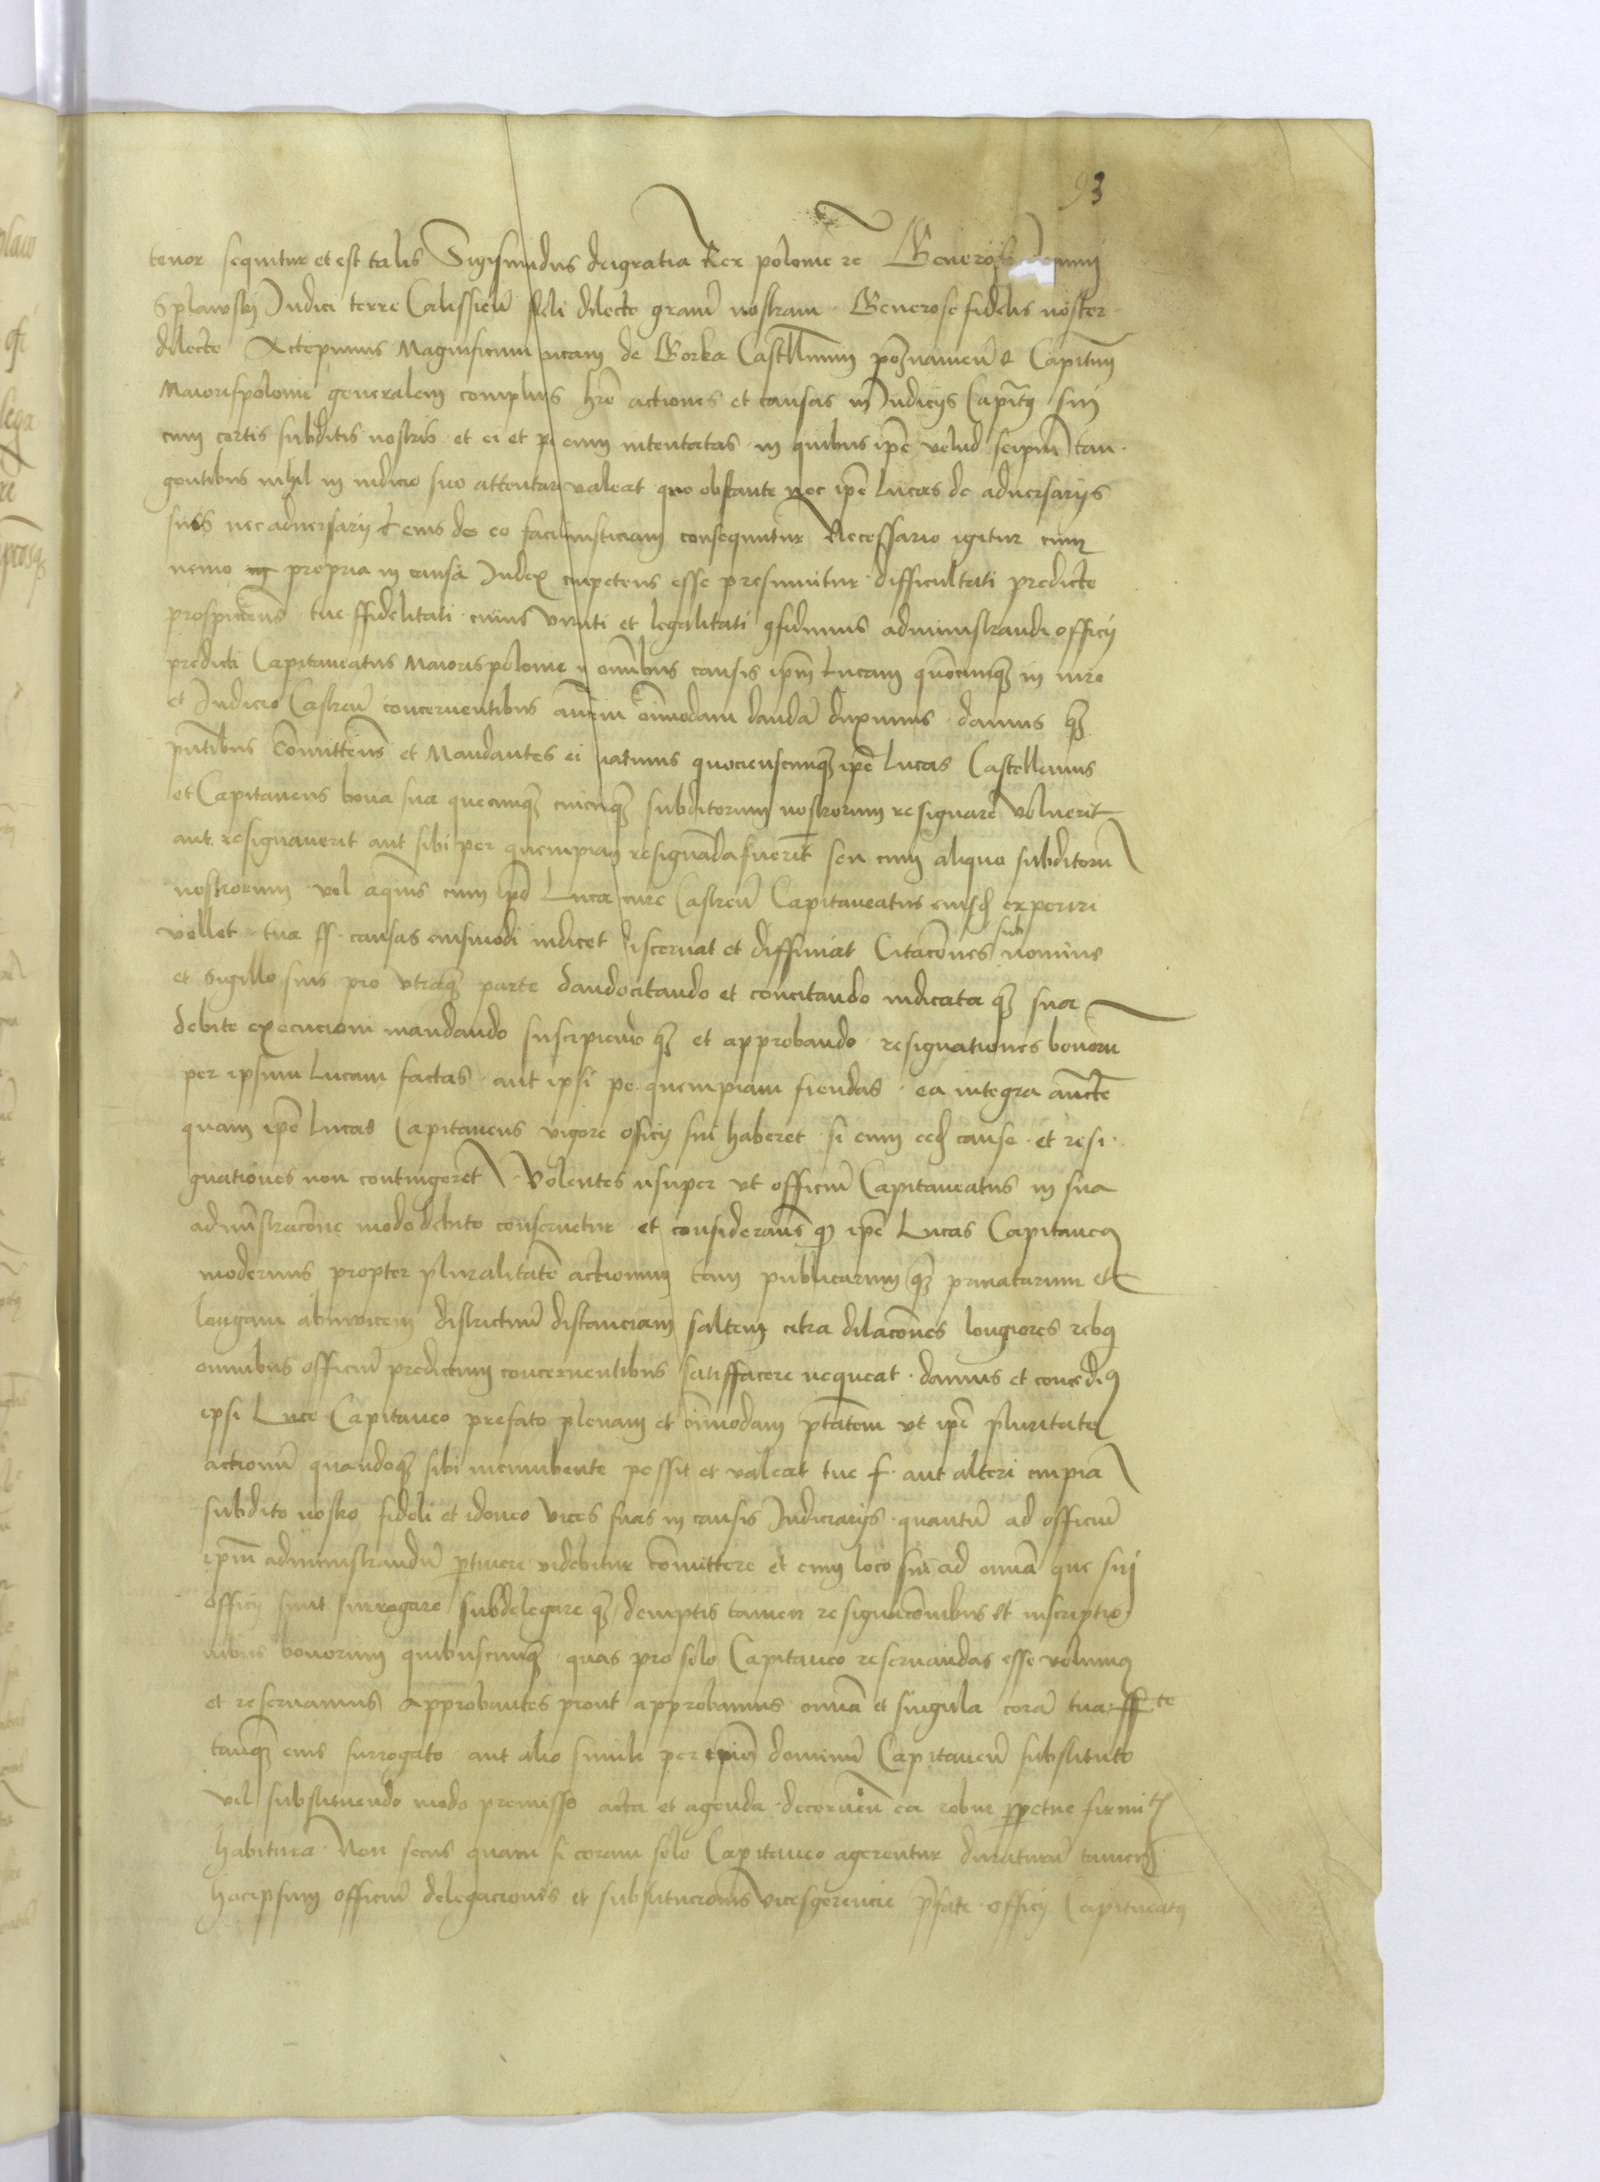 93
tenor sequitur et est talis Sigismũdus dei gratia Rex polonie ꝛc Generoso
Splawsky Judici terre Calissieñ fideli dilecto gratiã nostram. Generose fidelis noster
dilecte Accepimus Magnificum Lucam de Gorka Castellanum poznanieñ & Capitm̃
Maiorispolonie generalem complures hr̃e actiones et causas in Judicijs Capitꝰ sui
cum certis subditis nostris et ei et per eum intentatas in quibus ip̃e velud seip̃m tan
gentibus nihil in iudicio suo attentare valeat quo obstante nec ip̃e Lucas de adversarijs
suis nec adversarij eius de eo facile iusticiam consequuntur Necessario igitur cum
nemo propria in causa Judex cõpetens esse presumitur difficultati predicte
prospicieñs tue ffidelitati cuius virtuti et legalitati cõfidimus administrandi officij
predicti Capitaneatus Maioris polonie in omnibus causis ip̃m Lucam quõcunq̃ in iure
et Judicio Castreñ concernentibus aut̃em õimodam dandã duximus damus q̃
pñtibus Cõmitteñs et Mandantes ei quatinus quocienscunq̃ ip̃e Lucas Castellanus
et Capitaneus bona sua quecunq̃ cuicunq̃ subditorum nostrorum resignare voluerit
aut resignaverit aut sibi per quempiam resignãda fuerit seu cum aliquo subditorũ
nostrorum vel aquis cum ip̃o Luca iure Castreñ Capitaneatus eiusd̃ experiri
vellet tua ff. causas eiusmodi iudicet discernat et diffiniat Citacõnes sub nomine
et sigillo suis pro utraq̃ parte dando citando et concitando iudicata q̃ sua
debite execucioni mandando suscipiendo q̃ et approbando resignationes bonorũ
per ipsum Lucam factas aut ipsi per quempiam fiendas ea integra aucte
quam ip̃e Lucas Capitaneus vigore officij sui haberet si eum eed̃ cause et resi
gnationes non contingeret Volentes insuper ut officiũ Capitaneatus in sua
administracõne modo debito conservetur et considerañs q̃ ip̃e Lucas Capitaneꝰ
modernus propter pluralitatẽ actionum tam publicarum q̃ privatarum et
longam abinvicem districtuũ distanciam saltem citra dilacõnes longiores rebꝰ
omnibus officiũ predictum concernentibus satisffacere nequeat damus et concedimꝰ
ipsi Luce Capitaneo prefato plenam et õimodam ptãtem ut ip̃e pluritate
actionũ quandoq̃ sibi incumbente possit et valeat tue f. aut alteri cuipiã
subdito nostro fideli et idoneo vices suas in causis Judiciarijs quantũ ad officiũ
ip̃m administrandũ ptinere videbitur cõmittere et eum loco sui ad omnia que sui
officij sunt surrogare subdelegare q̃ demptis tamen resignacõnibus et inscriptio
nibus bonorum quibuscunq̃ quas pro solo Capitaneo reservandas esse volumꝰ
et reservamus Approbantes prout approbamus omnia et singula corã tua ff te
tanq̃ eius surrogato aut alio simili per ip̃um dominũ Capitaneũ substituto
vel substituendo modo premisso acta et agenda decerneñ ea robur ꝑpetue firmit̃
habitura Non secus quam si coram solo Capitaneo agerentur duraturũ tamen
hoc ipsum officiũ delegacionis et substitucionis vicesgerencie p̃fate officij Capitaneatꝰ